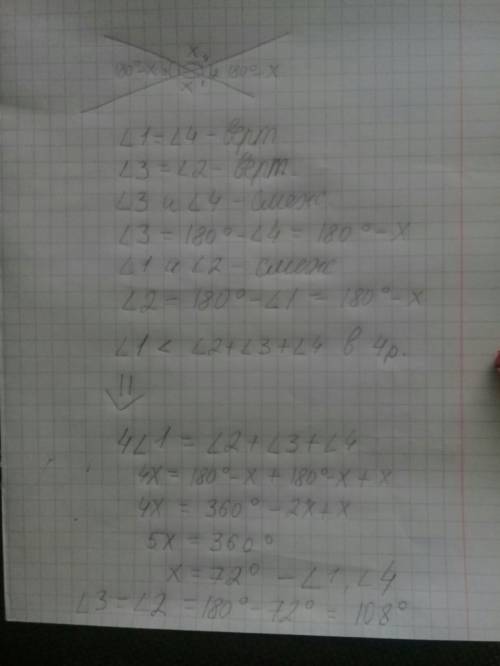 x 4
180°-x 180°-x
x 1
∠1=∠4 - верт
∠3=∠2 - верт.
∠3 и ∠4 - смеж
∠3 = 180°-∠4 = 180°-x
∠1 и ∠2 - смеж
∠2 = 180°-∠1 = 180°-x
∠1 < ∠2+∠3+∠4 в 4р.
⇓
4∠1 = ∠2+∠3+∠4
4x = 180°-x + 180°-x + x
4x = 360° - 2x + x
5x = 360°
x = 72° - ∠1, ∠4
∠3 = ∠2 = 180° - 72° = 108°